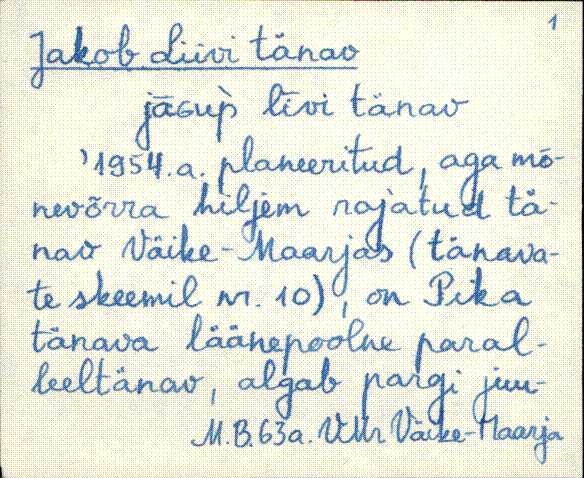 1
Jakob Liivi tänav
jāGup̀ līvi tänav
'1954.a. planeeritud, aga mõ-
nevõrra hiljem rajatud tä-
nav Väike-Maarjas (tänava-
te skeemil nr. 10), on Pika
tänava läänepoolne paral-
leeltänav, algab pargi juu-
M.B.63a. VMr Väike-Maarja